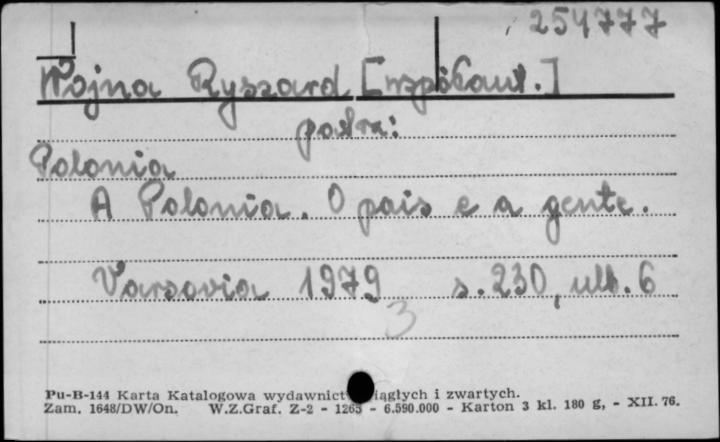 254777
Wojna Ryszard [współaut.]
patrz:
Polonia
A Polonia. O pais e a gente.
Varsovia 1979 s. 230, ulb. 6
3
Pu-B-144 Karta Katalogowa wydawnict iągłych i zwartych.
Zam. 1648/DW/On. W.Z.Graf. Z-2 - 1265 - 6.590.000 - Karton 3 kl. 180 g, - XII. 76.